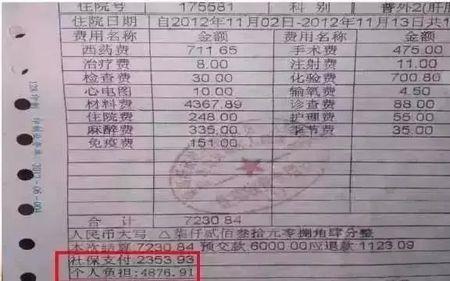 住院号 175581 科别 普外2(肝
住院日期 自2012年11月02日-2012年11月13日共1
费用名称 金额 费用名称 金额
西药费 711.65 手术费 475.00
治疗费 8.00 注射费 11.00
检查费 30.00 化验费 700.80
心电图 10.00 输氧费 4.50
材料费 4367.89 诊查费 88.00
住院费 248.00 护理费 55.00
麻醉费 335.00 季节费 35.00
免疫费 151.00
合计 7230.84
人民币大写 △柒仟贰佰叁拾元零捌角肆分整
本次结算:7230.84 预交款:6000.00应退款:1123.09
社保支付:2353.93
个人负担:4876.91